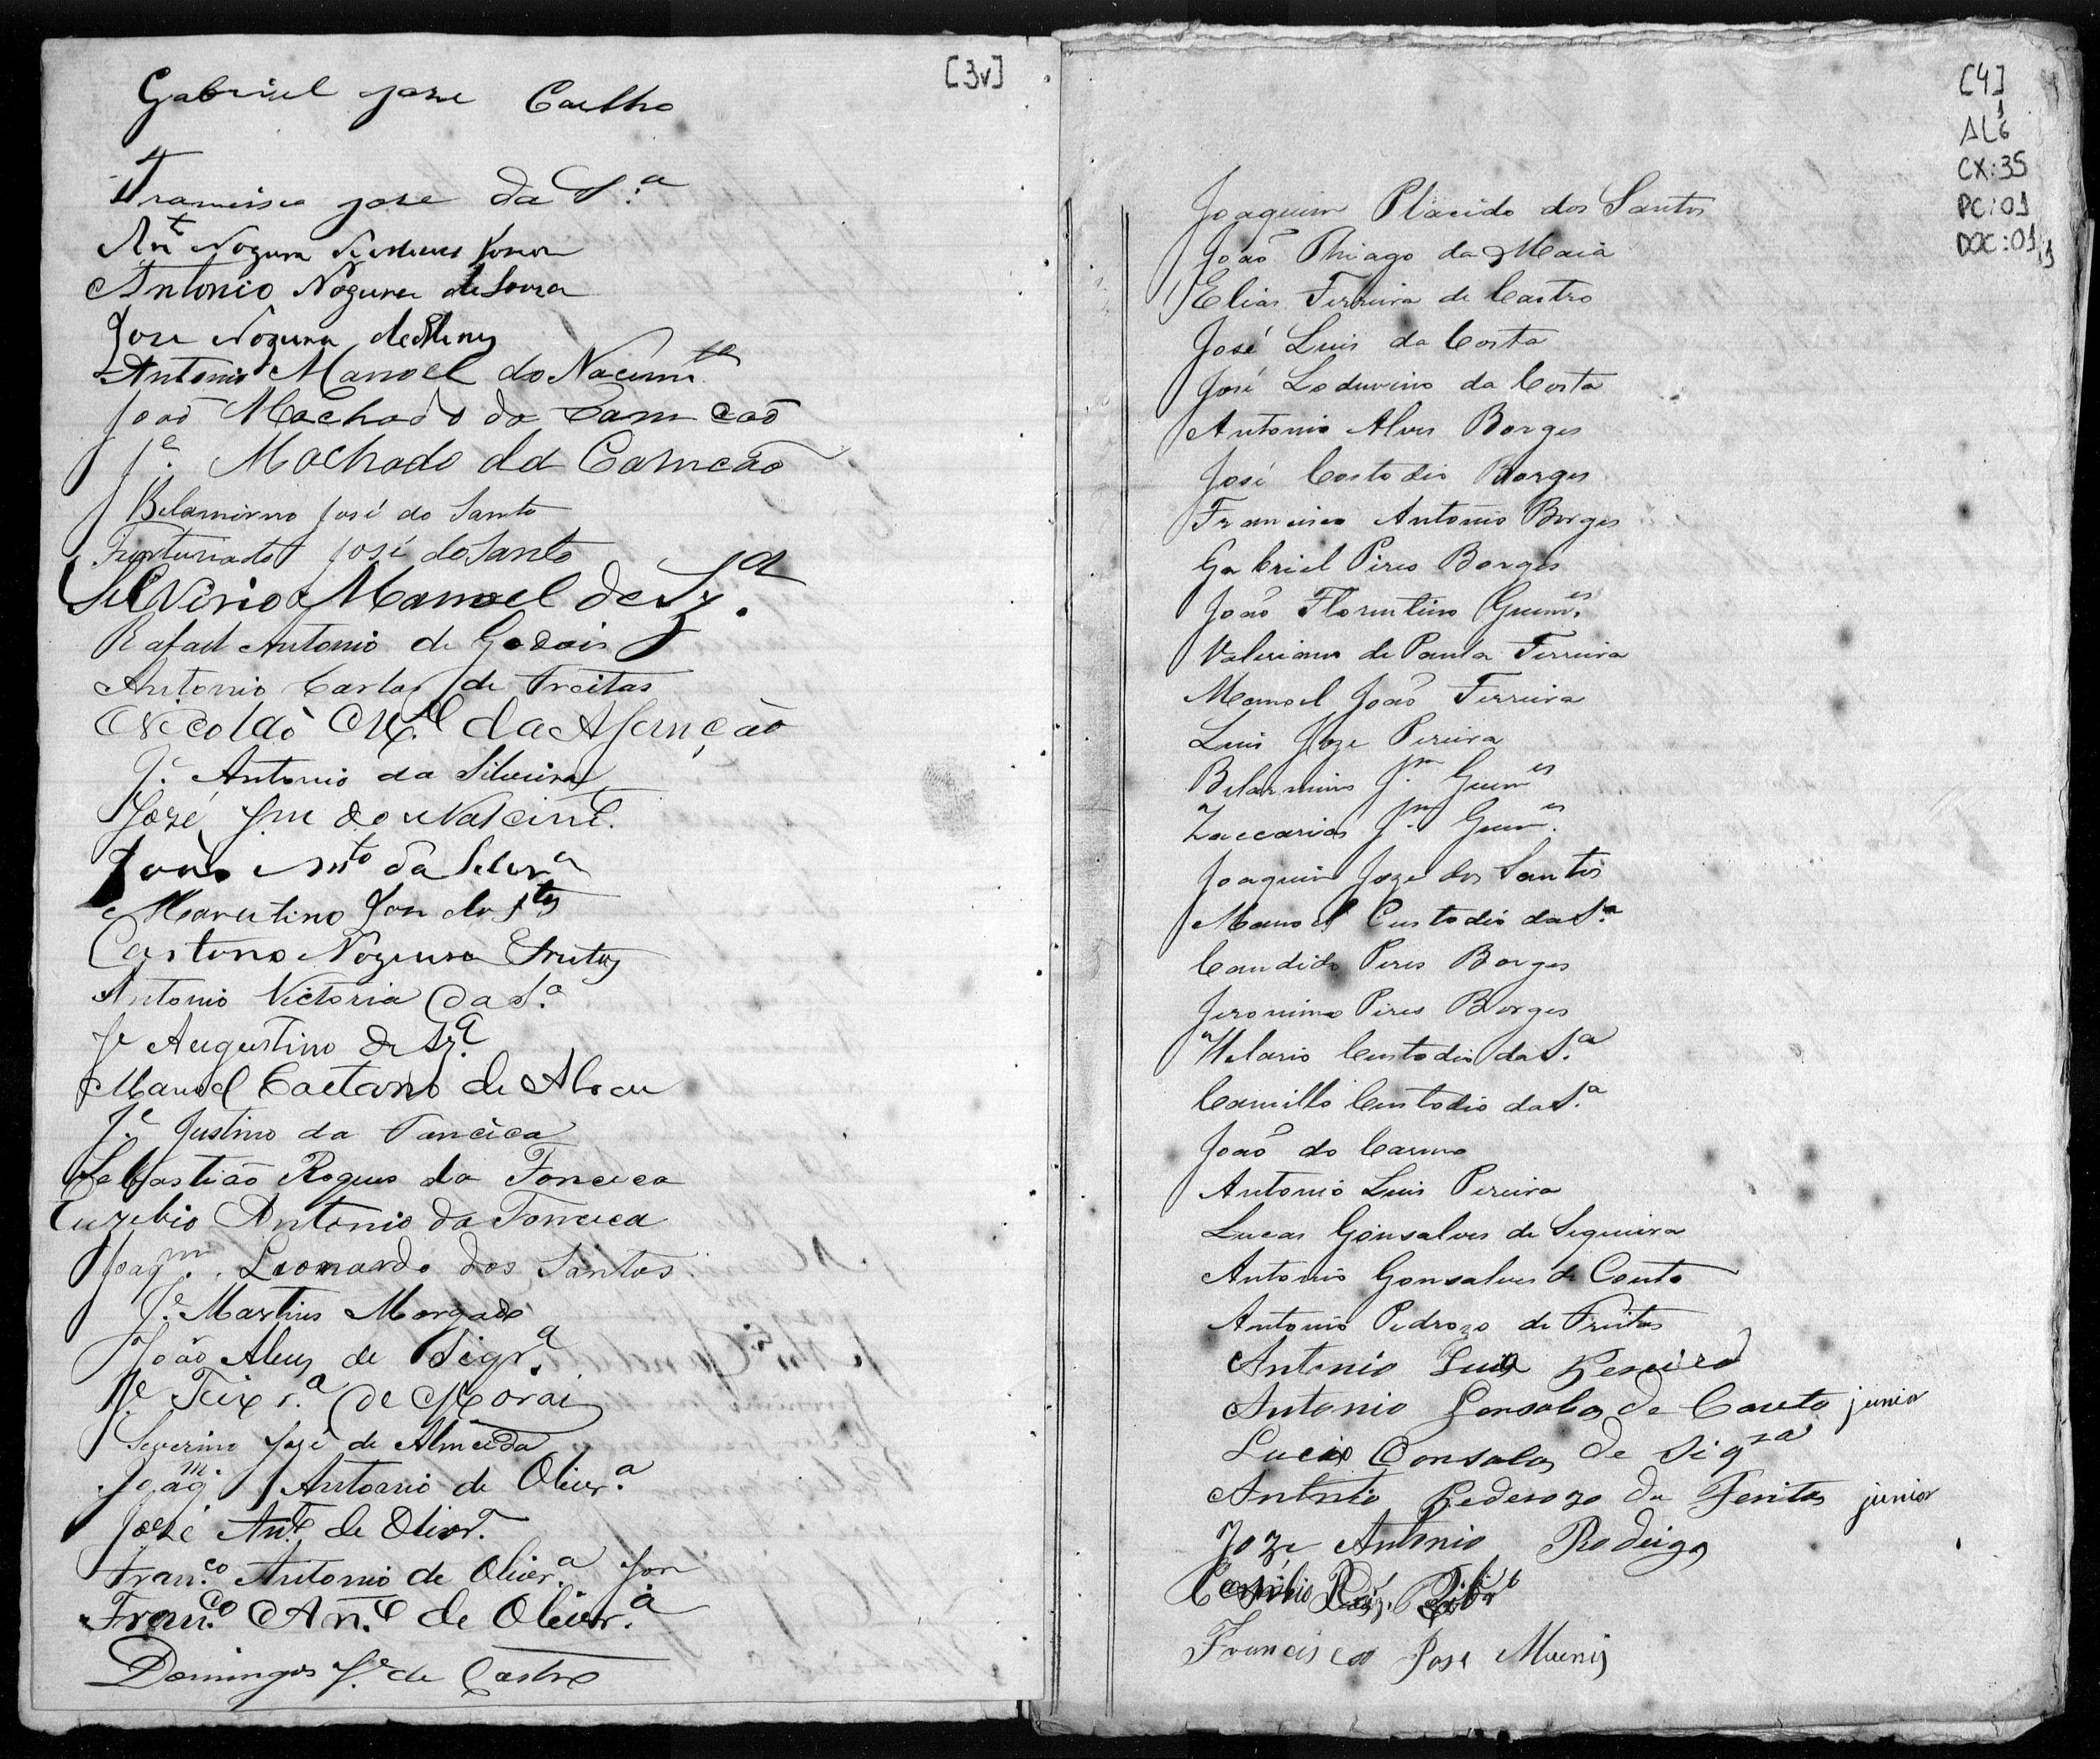 [3v]
Gabriel Jose Coelho
Francisco Jose da S.ª
Ant Nogura
Antonio Nogura de Souza
Jose Nogura de
Antonio Manoel do Nacimto
João Machado da Comcão
Je. Machado da Comcão
Belarmino José do Santo
Furtunato José do Santo
Silverio Manoel de Sz.ª
Rafael Antonio de Godois
Antonio Carlos de Freitas
Nicoláo Mel. da Asumção
Je. Antonio da Silveira
José Jm do
João Anto da Silvrª
Martino Jose do Stos
Castorio Nogueira Freitas
Antonio Victoria da S.ª
Je Augustino de Sz.ª
Manoel Caetano de Abreu
Je. Justino da Fonceca
Sebastião Rogeus da Fonceca
Euzebio Antonio da Fonceca
Joaqm. Leonardo dos Santos
Je. Martins Morgado
João Alus de Siqr.ª
Je Teixr.ª de Morais
Severino José de Almeida
Joaqm. Antonio de Olivr.ª
José Ante de Olivr.
Franco. Antonio de Olivr.ª Jor
Franco. Ane. de Olivr.ª
Domingos Je. de Castro
[4]
AL6
1
CX:35
PC:01
DOC:01
Joaquim Placido dos Santos
João Thiago da Maia
Elias Ferreira de Castro
José Luis da Costa
José Loduvino da Costa
Antonio Alves Borges
José Costodio Borges
Francisco Antonio Borges
Gabriel Pires Borges
João Florentino Guimes.
Valeriano de Paula Ferreira
Manoel João Ferreira
Luis Joze Pereira
Belarmino Jm. Guimes
Zaccarias Jm. Guimes.
Joaquim Joze dos Santos
Manoel Custodio da S.ª
Candido Pires Borges
Jeronimo Pires Borges
Helario Custodio da S.ª
Camillo Custodio da S.ª
João do Carmo
Antonio Luis Pereira
Lucas Gonsalves de Sequeira
Antonio Gonsalves de Couto
Antonio Pedrozo de Freitas
Antonio Luis Pereira
Antonio Gonsalves de Couto junior
Lucio Gonsalves de Siqra
Antonio Pederozo de Feritas junior
Joze Antonio Rodrigas
Francisco Jose Munis